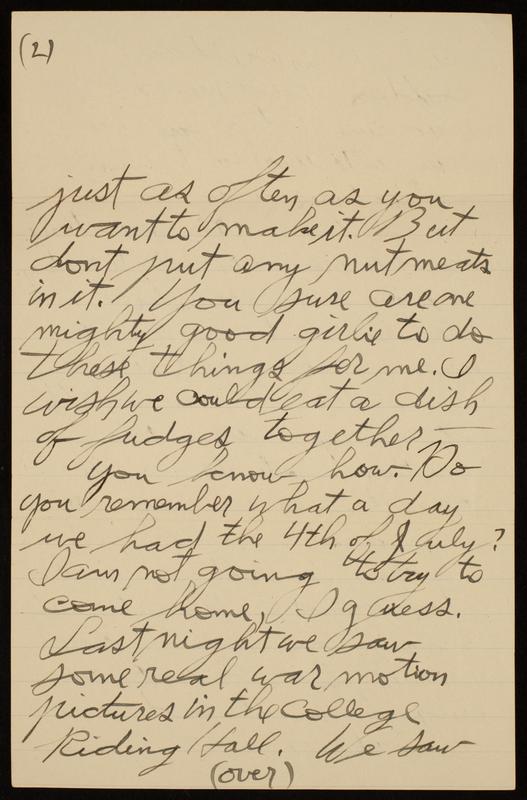 (2)
just as often as you
want to make it. But
dont put any nut meats
in it. You sure are one
mighty good girlie to do
these things for me. I
wish we could eat a dish
of fudges together —
you know how. Do
you remember what a day
we had the 4th of July?
I am not going to try to
come home, I guess.
Last night we saw
some real war motion
pictures in the College
Riding Hall. We saw
(over)